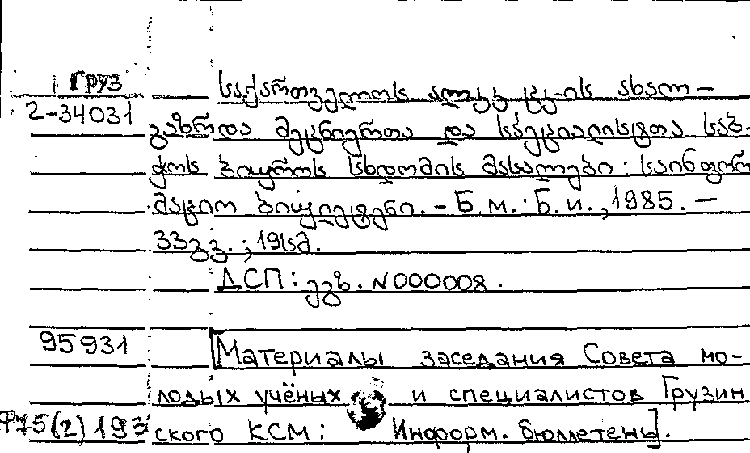 Груз
2-34031
საქართველოს ალკკ ცკ-ის ახალ-
გაზრდა მეცნიერთა და სპეციალისტთა საბ-
ჭოს ბიუროს სხდომის მასალები: საინფორ
მაციო ბიულეტენი. - Б.м.: Б.и., 1985. -
33გვ.; 19სმ.
ДСП: ეგზ. N000008.
95931
[Материалы заседания Совета мо-
лодых учёных и специалистов Грузин
ф75(2)193 ского КСМ: Информ. бюллетень].